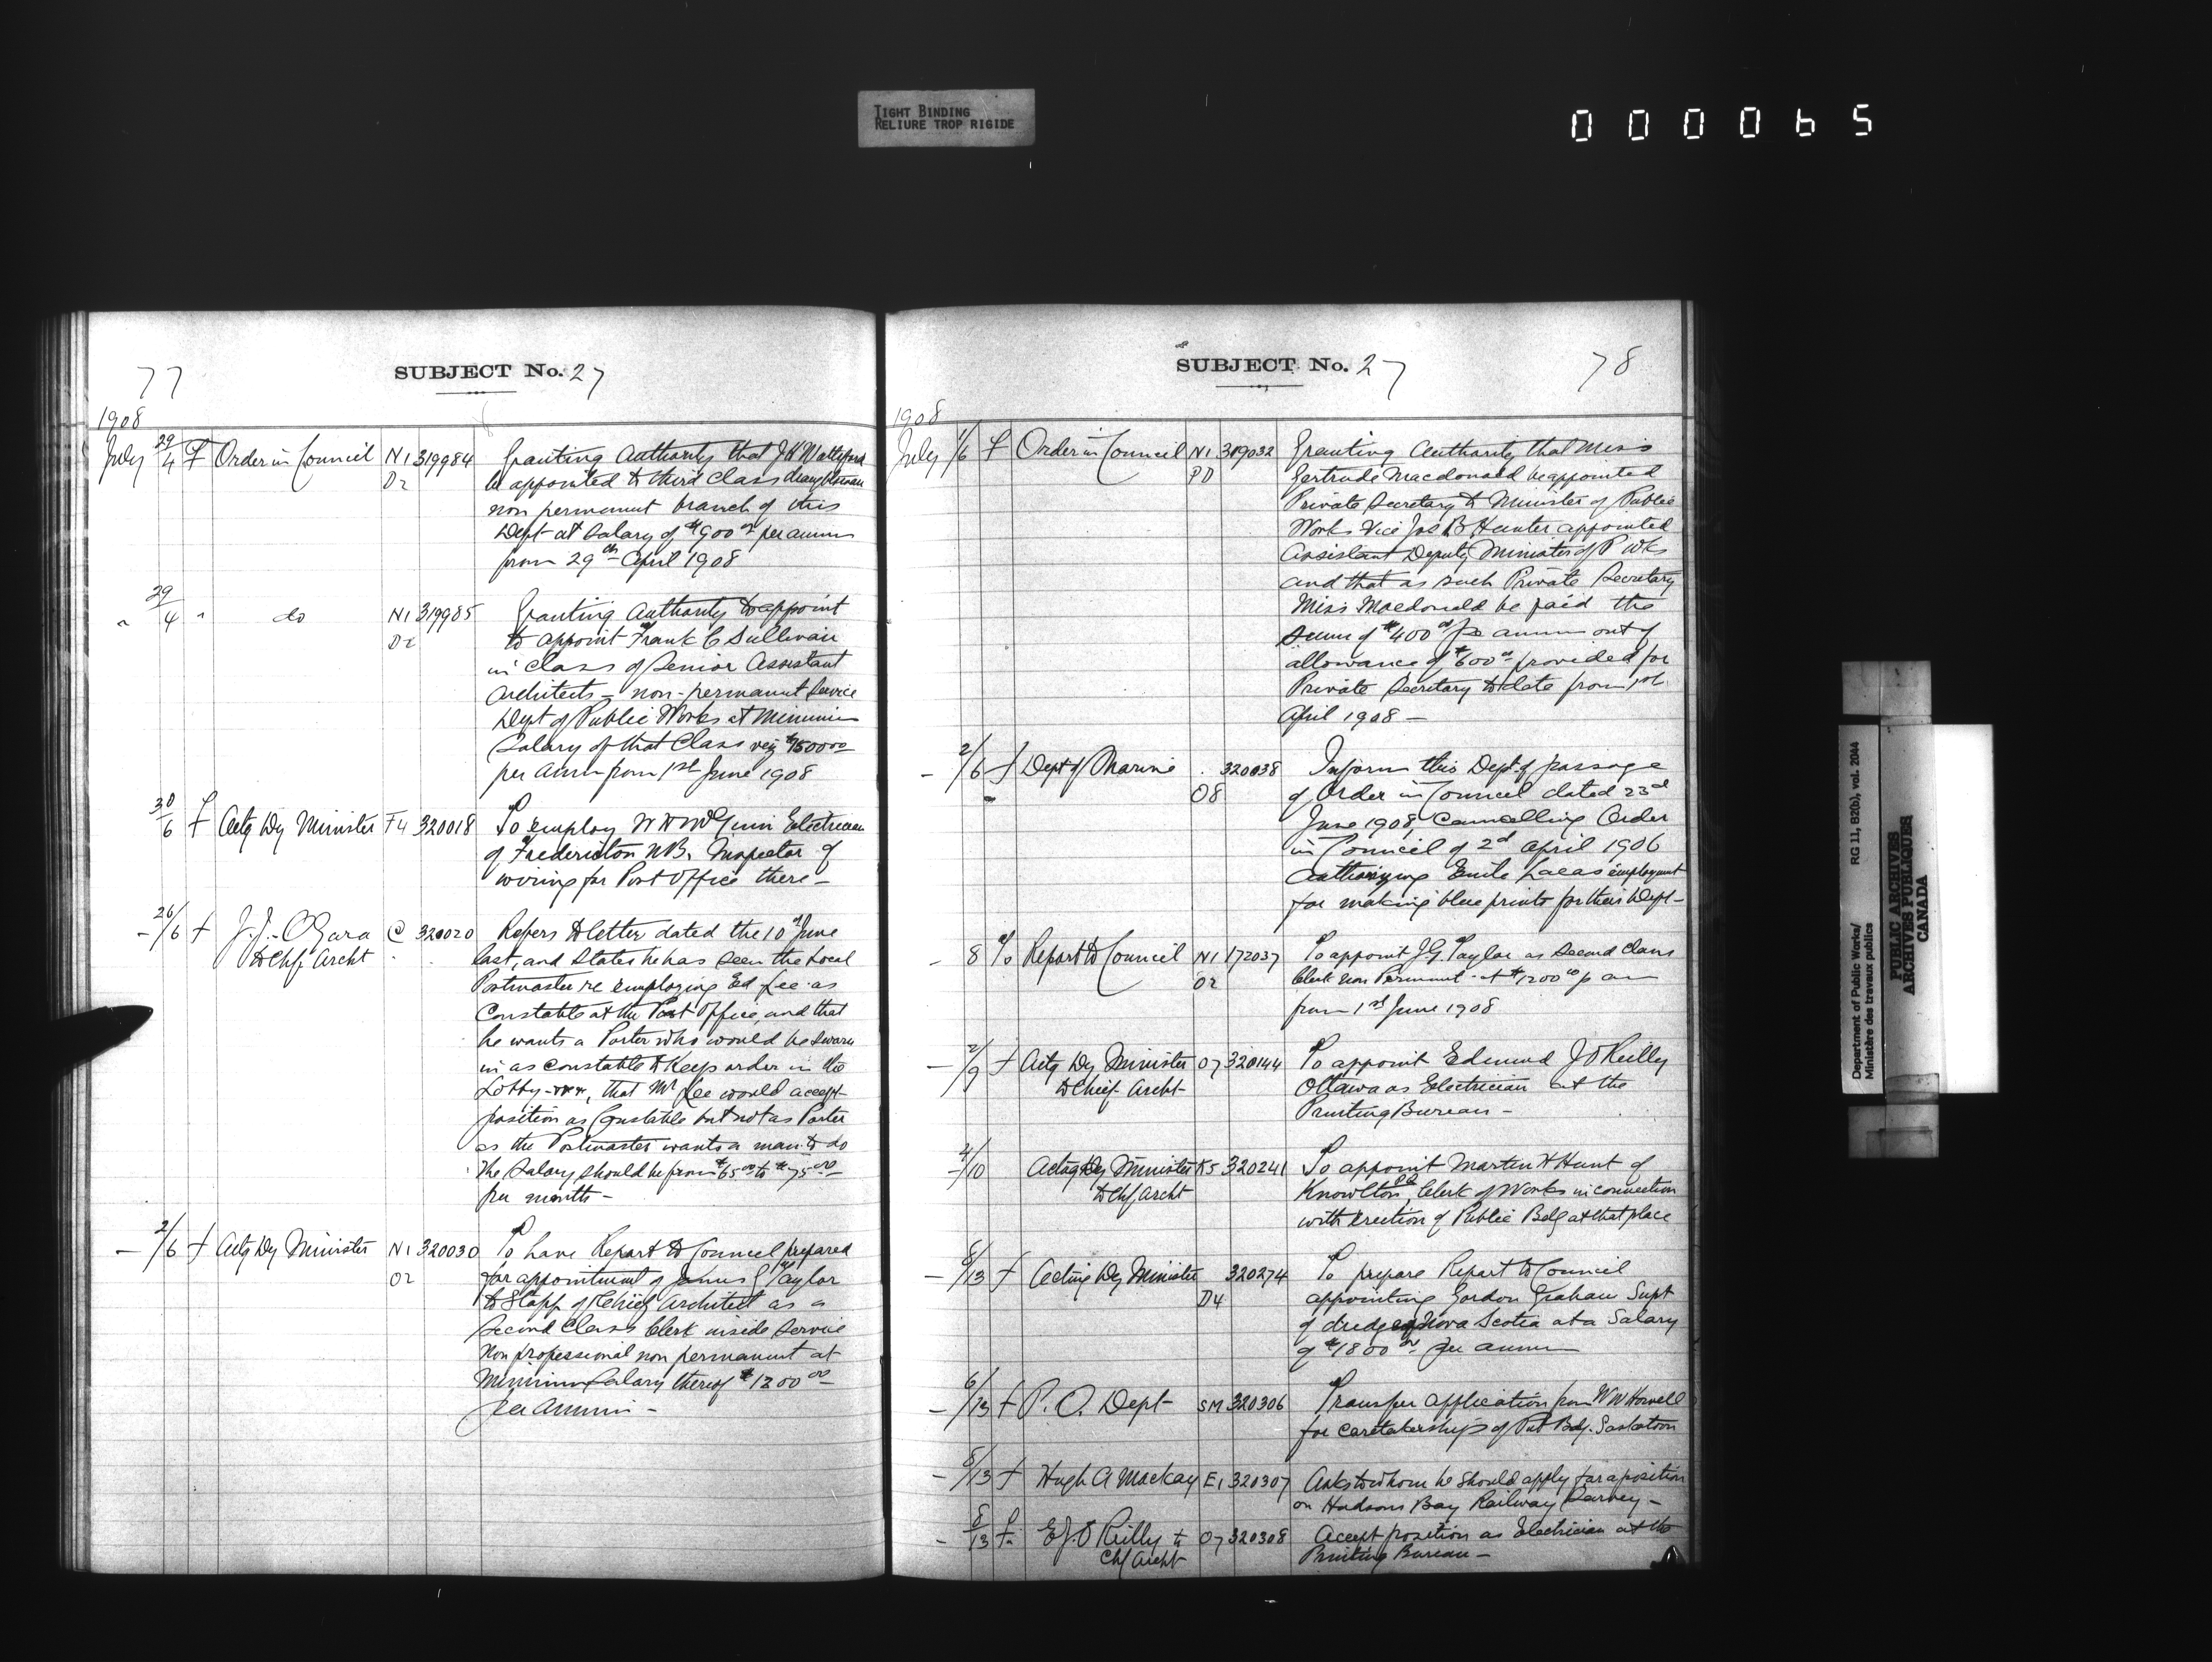 TIGHT BINDING
RELIURE TROP RIGIDE
000065
77
SUBJECT No. 27
1908
July 29/4 f Order in Council N1 319984 Granting Authority that J H
O2 be appointed to third class draughtsman
non permanent branch of this
Dept at Salary of $900 00 per annum
from 29th April 1908
" 29/4 " do N1 319985 Granting Authority to appoint
O2 to appoint Frank C Sullivan
in Class of Senior Assistant
Architects - non-permanent service
Dept of Public Works at Minimum
Salary of that Class viz $1500 00
per Annum from 1st June 1908
30/6 f Actg Dy Minister F4 320018 To employ Electrician
of Fredericton N.B. Inspector of
wiring for Post Office there -
- 26/6 f J.J. O'Gara C 320020 Refers to letter dated the 10 June
to Chf Archt last, and States he has seen the Local
Postmaster re employing Ed Lee as
Constable at the Post Office, and that
he wants a Porter who would be sworn
in as constable to Keep order in the
Lobby -, that Mr Lee would accept
position as Constable but not as Porter
as the Postmaster wants a man to do
the Salary should be from $65 00 to $75 00
per month -
- 2/6 f Actg Dy Minister N1 320030 To have Report to Council prepared
O2 for appointment of James G Taylor
to Staff of Chief Architect as a
Second Class Clerk inside service
Non professional non permanent at
Minimum Salary thereof $1200 00
per Annum -
SUBJECT No. 27
78
1908
July 1/6 f Order in Council N1 319032 Granting Authority that Miss
PD Gertrude Macdonald be appointed
Private Secretary to Minister of Public
Works Vice Jas B Hunter appointed
Assistant Deputy Minister of P Wks
and that as such Private Secretary
Miss Macdonald be paid the
Sum of $400 00 per annum out of
allowance of $600 00 provided for
Private Secretary to date from 1st
April 1908 -
- 2/6 f Dept of Marine 320038 Inform this Dept of passage
O8 of Order in Council dated 23rd
June 1908, Cancelling Order
in Council of 2d April 1906
Authorizing Emile Lucas employment
for making blue prints for their Dept -
- 8 % Report to Council N1 172037 To appoint J.G. Taylor as Second Class
O2 Clerk non Permanent at $1200 00 p an
from 1st June 1908
- 2/9 f Actg Dy Minister O7 320144 To appoint Edmund J O'Reilly
to Chief Archt Ottawa as Electrician at the
Printing Bureau -
- 4/10 Acting Dy Minister K5 320241 To appoint Martin H Hunt of
to Chf Archt Knowlton PQ, Clerk of Works in connection
with Erection of Public Bdg at that place
- 8/13 f Acting Dy Minister 320274 To prepare Report to Council
D4 appointing Gordon Graham Supt
of dredges Nova Scotia at a Salary
of $1800 00 per annum
- 6/13 f P.O. Dept SM 320306 Transfer application from W W Howell
for caretakership of Pub Bdg. Saskatoon
- 8/13 f Hugh A Mackay E1 320307 Asks to whom he should apply for a position
on Hudsons Bay Railway Survey -
- 8/13 f E J O'Reilly to O7 320308 Accept position as Electrician at the
Chf Archt Printing Bureau -
Department of Public Works/
Ministère des travaux publics
RG 11, B2(b), vol. 2044
PUBLIC ARCHIVES
ARCHIVES PUBLIQUES
CANADA